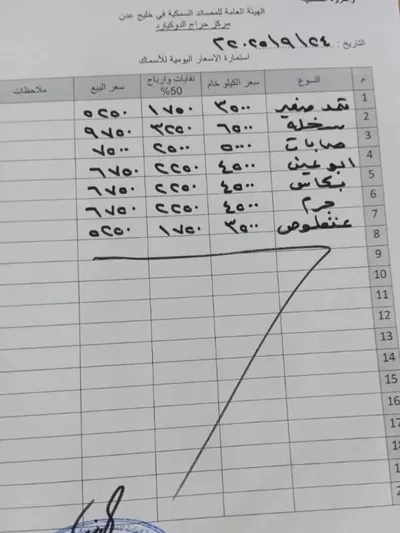 الهيئة العامة للمصائد السمكية في خليج عدن
مركز حراج الدوكيارد
التاريخ : ٢٠٢٥/٩/٢٤
استمارة الاسعار اليومية للأسماك
م النوع سعر الكيلو خام نفايات وارباح 50% سعر البيع ملاحظات
1 ثمد صغير ٣٥٠٠ ١٧٥٠ ٥٢٥٠
2 سخله ٦٥٠٠ ٣٢٥٠ ٩٧٥٠
3 ٥٠٠٠ ٢٥٠٠ ٧٥٠٠
4 ابو عين ٤٥٠٠ ٢٢٥٠ ٦٧٥٠
5 ٤٥٠٠ ٢٢٥٠ ٦٧٥٠
6 ٤٥٠٠ ٢٢٥٠ ٦٧٥٠
7 عنفلوص ٣٥٠٠ ١٧٥٠ ٥٢٥٠
8
9
10
11
12
13
14
15
16
17
18